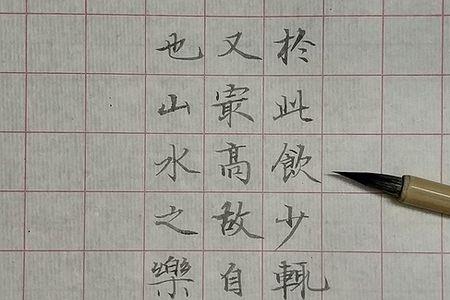 於此飲少輒
又最高故自
也山水之樂